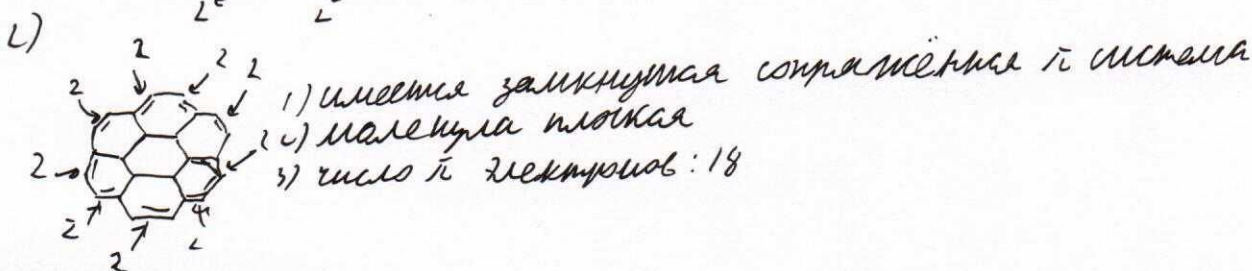 2 2
2)
2 2 2 1) имеется замкнутая сопряжённая π система
2 2 2) молекула плоская
2 3) число π электронов: 18
2 2
2